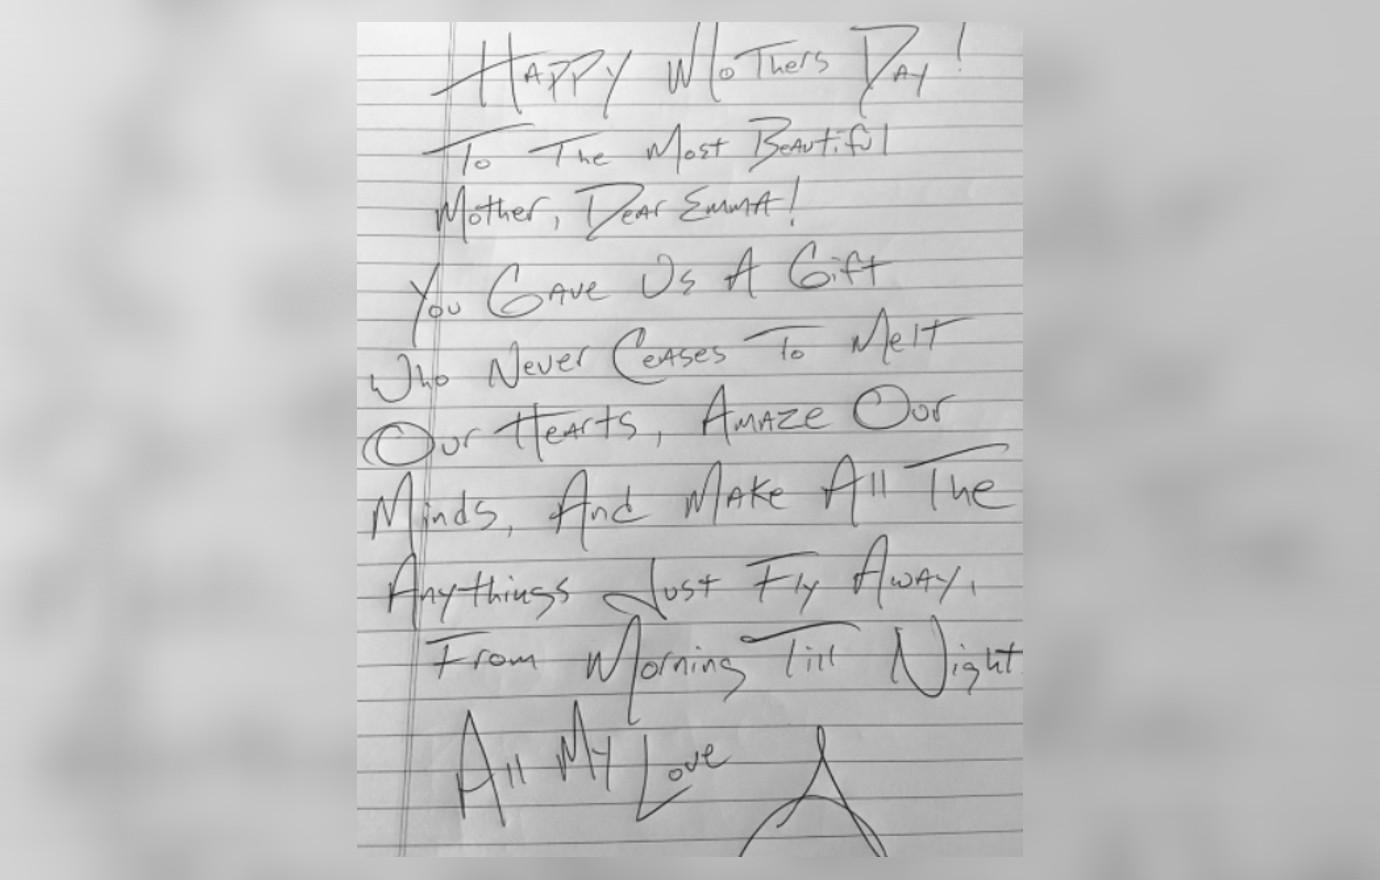 Happy Mothers Day!
To The Most Beautiful
Mother, Dear Emma!
You Gave Us A Gift
Who Never Ceases To Melt
Our Hearts, Amaze Our
Minds, And Make All The
Anythings Just Fly Away,
From Morning Till Night
All My Love